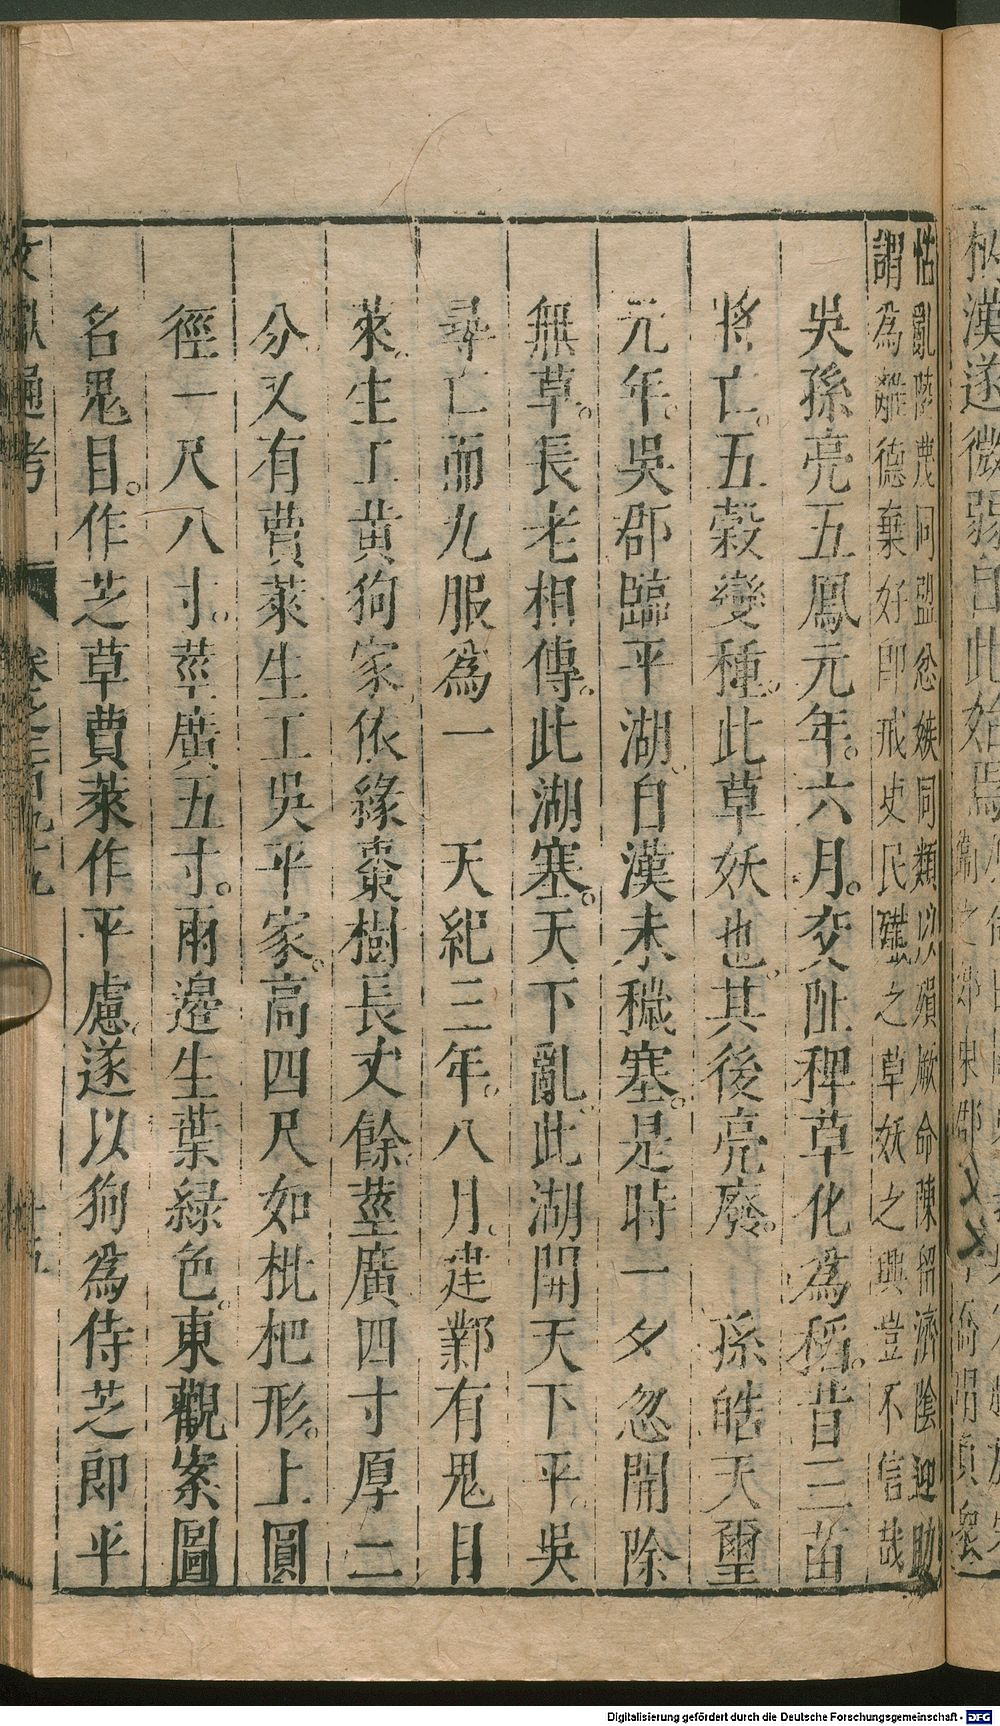 怙亂陸茂同盟忿嫉同類以殞厥命陳留濟陰迎助
謂為離德棄好即戎吏民殱之草妖之興豈不信哉
吳孫亮五鳳元年六月交阯稗草化為稻昔三苗
將亡五穀變種此草妖也其後亮廢　孫皓天璽
元年吳郡臨平湖自漢末穢塞是時一夕忽開除
無草長老相傳此湖塞天下亂此湖開天下平吳
尋亡而九服為一　天紀三年八月建鄴有鬼目
菜生工黃狗家依緣棗樹長丈餘莖廣四寸厚二
分又有蕒菜生工吳平家高四尺如枇杷形上圓
徑一尺八寸莖廣五寸兩邊生葉綠色東觀案圖
名鬼目作芝草蕒菜作平慮遂以狗為侍芝郎平
文獻通考　卷之二百九十九　十五
漢遂微弱自此始焉
Digitalisierung gefördert durch die Deutsche Forschungsgemeinschaft - DFG